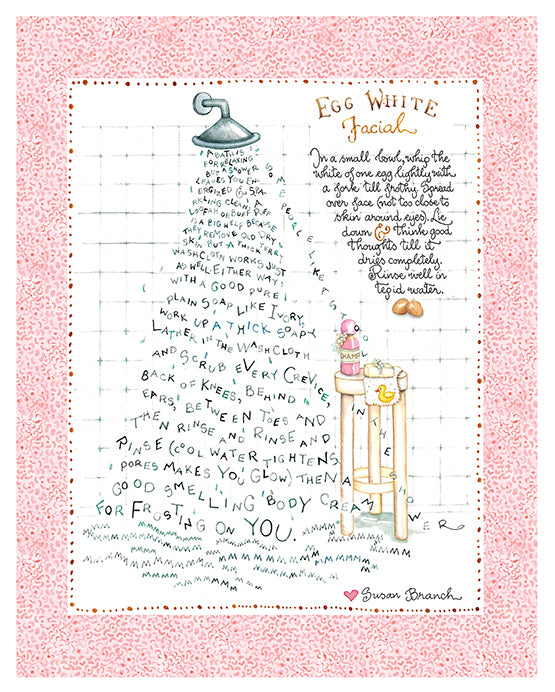 EGG WHITE
Facial
In a small bowl, whip the
white of one egg lightly with
a fork till frothy. Spread
over face (not too close to
skin around eyes). Lie
down & think good
thoughts till it
dries completely.
Rinse well in
tepid water.
A BATH IS
FOR RELAXING
BUT A SHOWER
LEAVES YOU EN-
ERGIZED & SPA-
RKLING CLEAN. A
LOOFAH OR BUFF PUFF
IS A BIG HELP BECAUSE
THEY REMOVE OLD DRY
SKIN BUT A THICK TERRY
WASHCLOTH WORKS JUST
AS WELL. EITHER WAY,
WITH A GOOD PURE
PLAIN SOAP LIKE IVORY,
WORK UP A THICK SOAPY
LATHER IN THE WASHCLOTH
AND SCRUB EVERY CREVICE,
BACK OF KNEES, BEHIND
EARS, BETWEEN TOES AND
THEN RINSE AND RINSE AND
RINSE (COOL WATER TIGHTENS
PORES MAKES YOU GLOW) THEN A
GOOD SMELLING BODY CREAM
FOR FROSTING ON YOU.
SOME PEOPLE LIKE A STOOL IN THE SHOWER
SHAMP
MMMMMMMMMM
Susan Branch